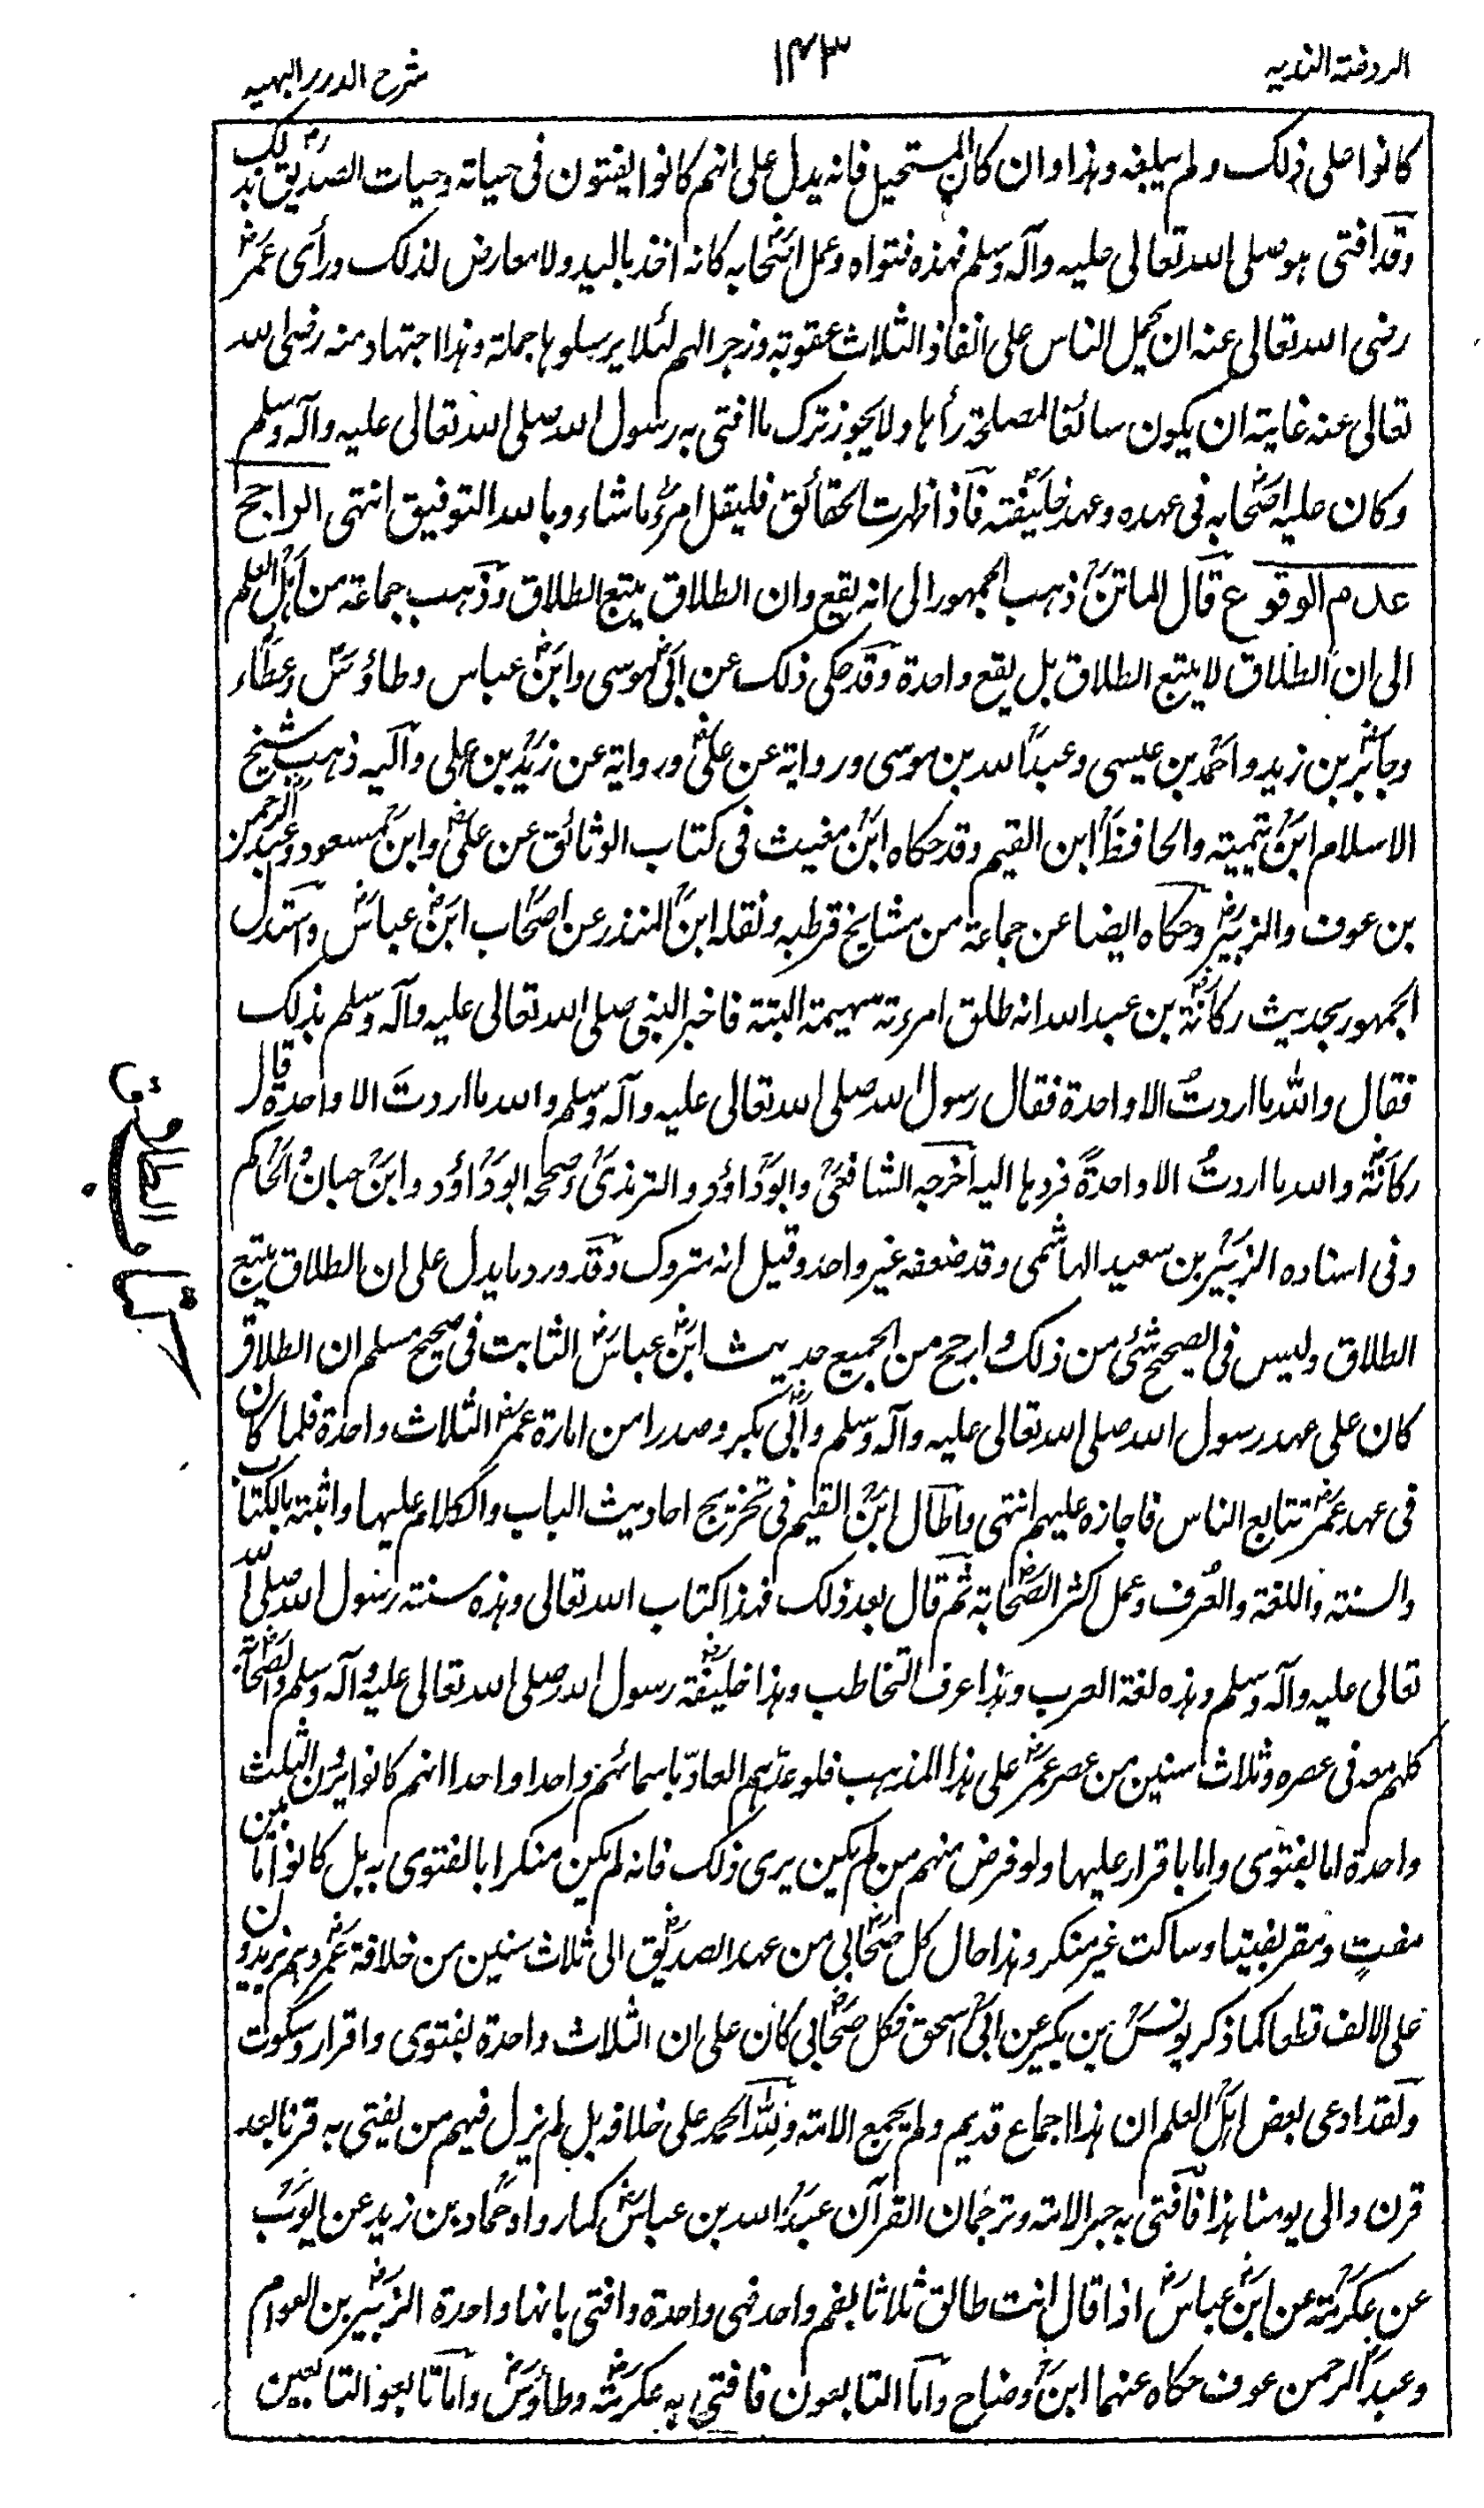 الروضة الندية
١٤٣
شرح الدرر البهيه
كانوا على ذلك ولم يبلغه وهذا وان كان المستحيل فانه يدل على انهم كانوا يفتون فى حياته وحيات الصديق بذلك
وقد افتى هو صلى الله تعالى عليه وآله وسلم فهذه فتواه وعمل اصحابه كانه اخذ باليد ولا معارض لذلك ورأى عمر
رضى الله تعالى عنه ان يحمل الناس على انفاذ الثلاث عقوبة وزجرا لهم لئلا يرسلوها جملة وهذا اجتهاد منه رضى الله
تعالى عنه غايته ان يكون سائغا لمصلحة رأها ولا يجوز ترك ما افتى به رسول الله صلى الله تعالى عليه وآله وسلم
وكان عليه اصحابه فى عهده وعهد خليفته فاذا ظهرت الحقائق فليقل امرؤ ما شاء وبالله التوفيق انتهى الراجح
عدم الوقوع قال الماتن ذهب الجمهور الى انه يقع وان الطلاق يتبع الطلاق وذهب جماعة من اهل العلم
الى ان الطلاق لا يتبع الطلاق بل يقع واحدة وقد حكى ذلك عن ابى موسى وابن عباس وطاؤس وعطاء
وجابر بن زيد واحمد بن عيسى وعبد الله بن موسى ورواية عن على ورواية عن زيد بن على واليه ذهب شيخ
الاسلام ابن تيمية والحافظ ابن القيم وقد حكاه ابن مغيث فى كتاب الوثائق عن على وابن مسعود وعبد الرحمن
بن عوف والزبير وحكاه ايضا عن جماعة من مشايخ قرطبه ونقله ابن المنذر عن اصحاب ابن عباس واستدل
الجمهور بحديث ركانة بن عبد الله انه طلق امرءته سهيمة البتة فاخبر النبى صلى الله تعالى عليه وآله وسلم بذلك
فقال والله ما اردتُ الا واحدة فقال رسول الله صلى الله تعالى عليه وآله وسلم والله ما اردتَ الا واحدة قال
ركانة والله ما اردتُ الا واحدةً فردها اليه اخرجه الشافعى وابو داؤد والترمذى وصححه ابو داؤد وابن حبان والحاكم
وفى اسناده الزبير بن سعيد الهاشمى وقد ضعفه غير واحد وقيل انه متروك وقد ورد ما يدل على ان الطلاق يتبع
الطلاق وليس فى الصحيح شئ من ذلك وارجح من الجميع حديث ابن عباس الثابت فى صحيح مسلم ان الطلاق
كان على عهد رسول الله صلى الله تعالى عليه وآله وسلم وابى بكر وصدرا من امارة عمر الثلاث واحدة فلما كان
فى عهد عمر تتابع الناس فاجازه عليهم انتهى واطال ابن القيم فى تخريج احاديث الباب والكلام عليها واثبته بالكتاب
والسنة واللغة والعرف وعمل اكثر الصحابة ثم قال بعد ذلك فهذا كتاب الله تعالى وهذه سنة رسول الله صلى الله
تعالى عليه وآله وسلم وهذه لغة العرب وهذا عرف التخاطب وهذا خليفة رسول الله صلى الله تعالى عليه وآله وسلم والصحابة
كلهم معه فى عصره وثلاث سنين من عصر عمر على هذا المذهب فلو عدهم العادّ باسمائهم واحدا واحدا انهم كانوا يرون الثلث
واحدة اما بفتوى واما باقرار عليها ولو فرض منهم من لم يكن يرى ذلك فانه لم يكن منكرا بالفتوى به بل كانوا ما بين
مفتٍ ومقر بفيتا وساكت غير منكر وهذا حال كل صحابى من عهد الصديق الى ثلاث سنين من خلافة عمر وهم يزيدون
على الالف قطعا كما ذكر يونس بن بكير عن ابى اسحق فكل صحابى كان على ان الثلاث واحدة بفتوى واقرار وسكوت
ولقد ادعى بعض اهل العلم ان هذا اجماع قديم ولم تجمع الامة ولله الحمد على خلافه بل لم يزل فيهم من يفتى به قرنا بعد
قرن والى يومنا هذا فافتى به حبر الامة وترجمان القرآن عبد الله بن عباس كما رواه حماد بن زيد عن ايوب
عن عكرمة عن ابن عباس اذا قال انت طالق ثلاثا بفم واحد فهى واحدة وافتى بانها واحدة الزبير بن العوام
وعبد الرحمن عوف حكاه عنهما ابن وضاح واما التابعون فافتى به عكرمة وطاؤس واما تابعوا التابعين
كتاب الطلاق